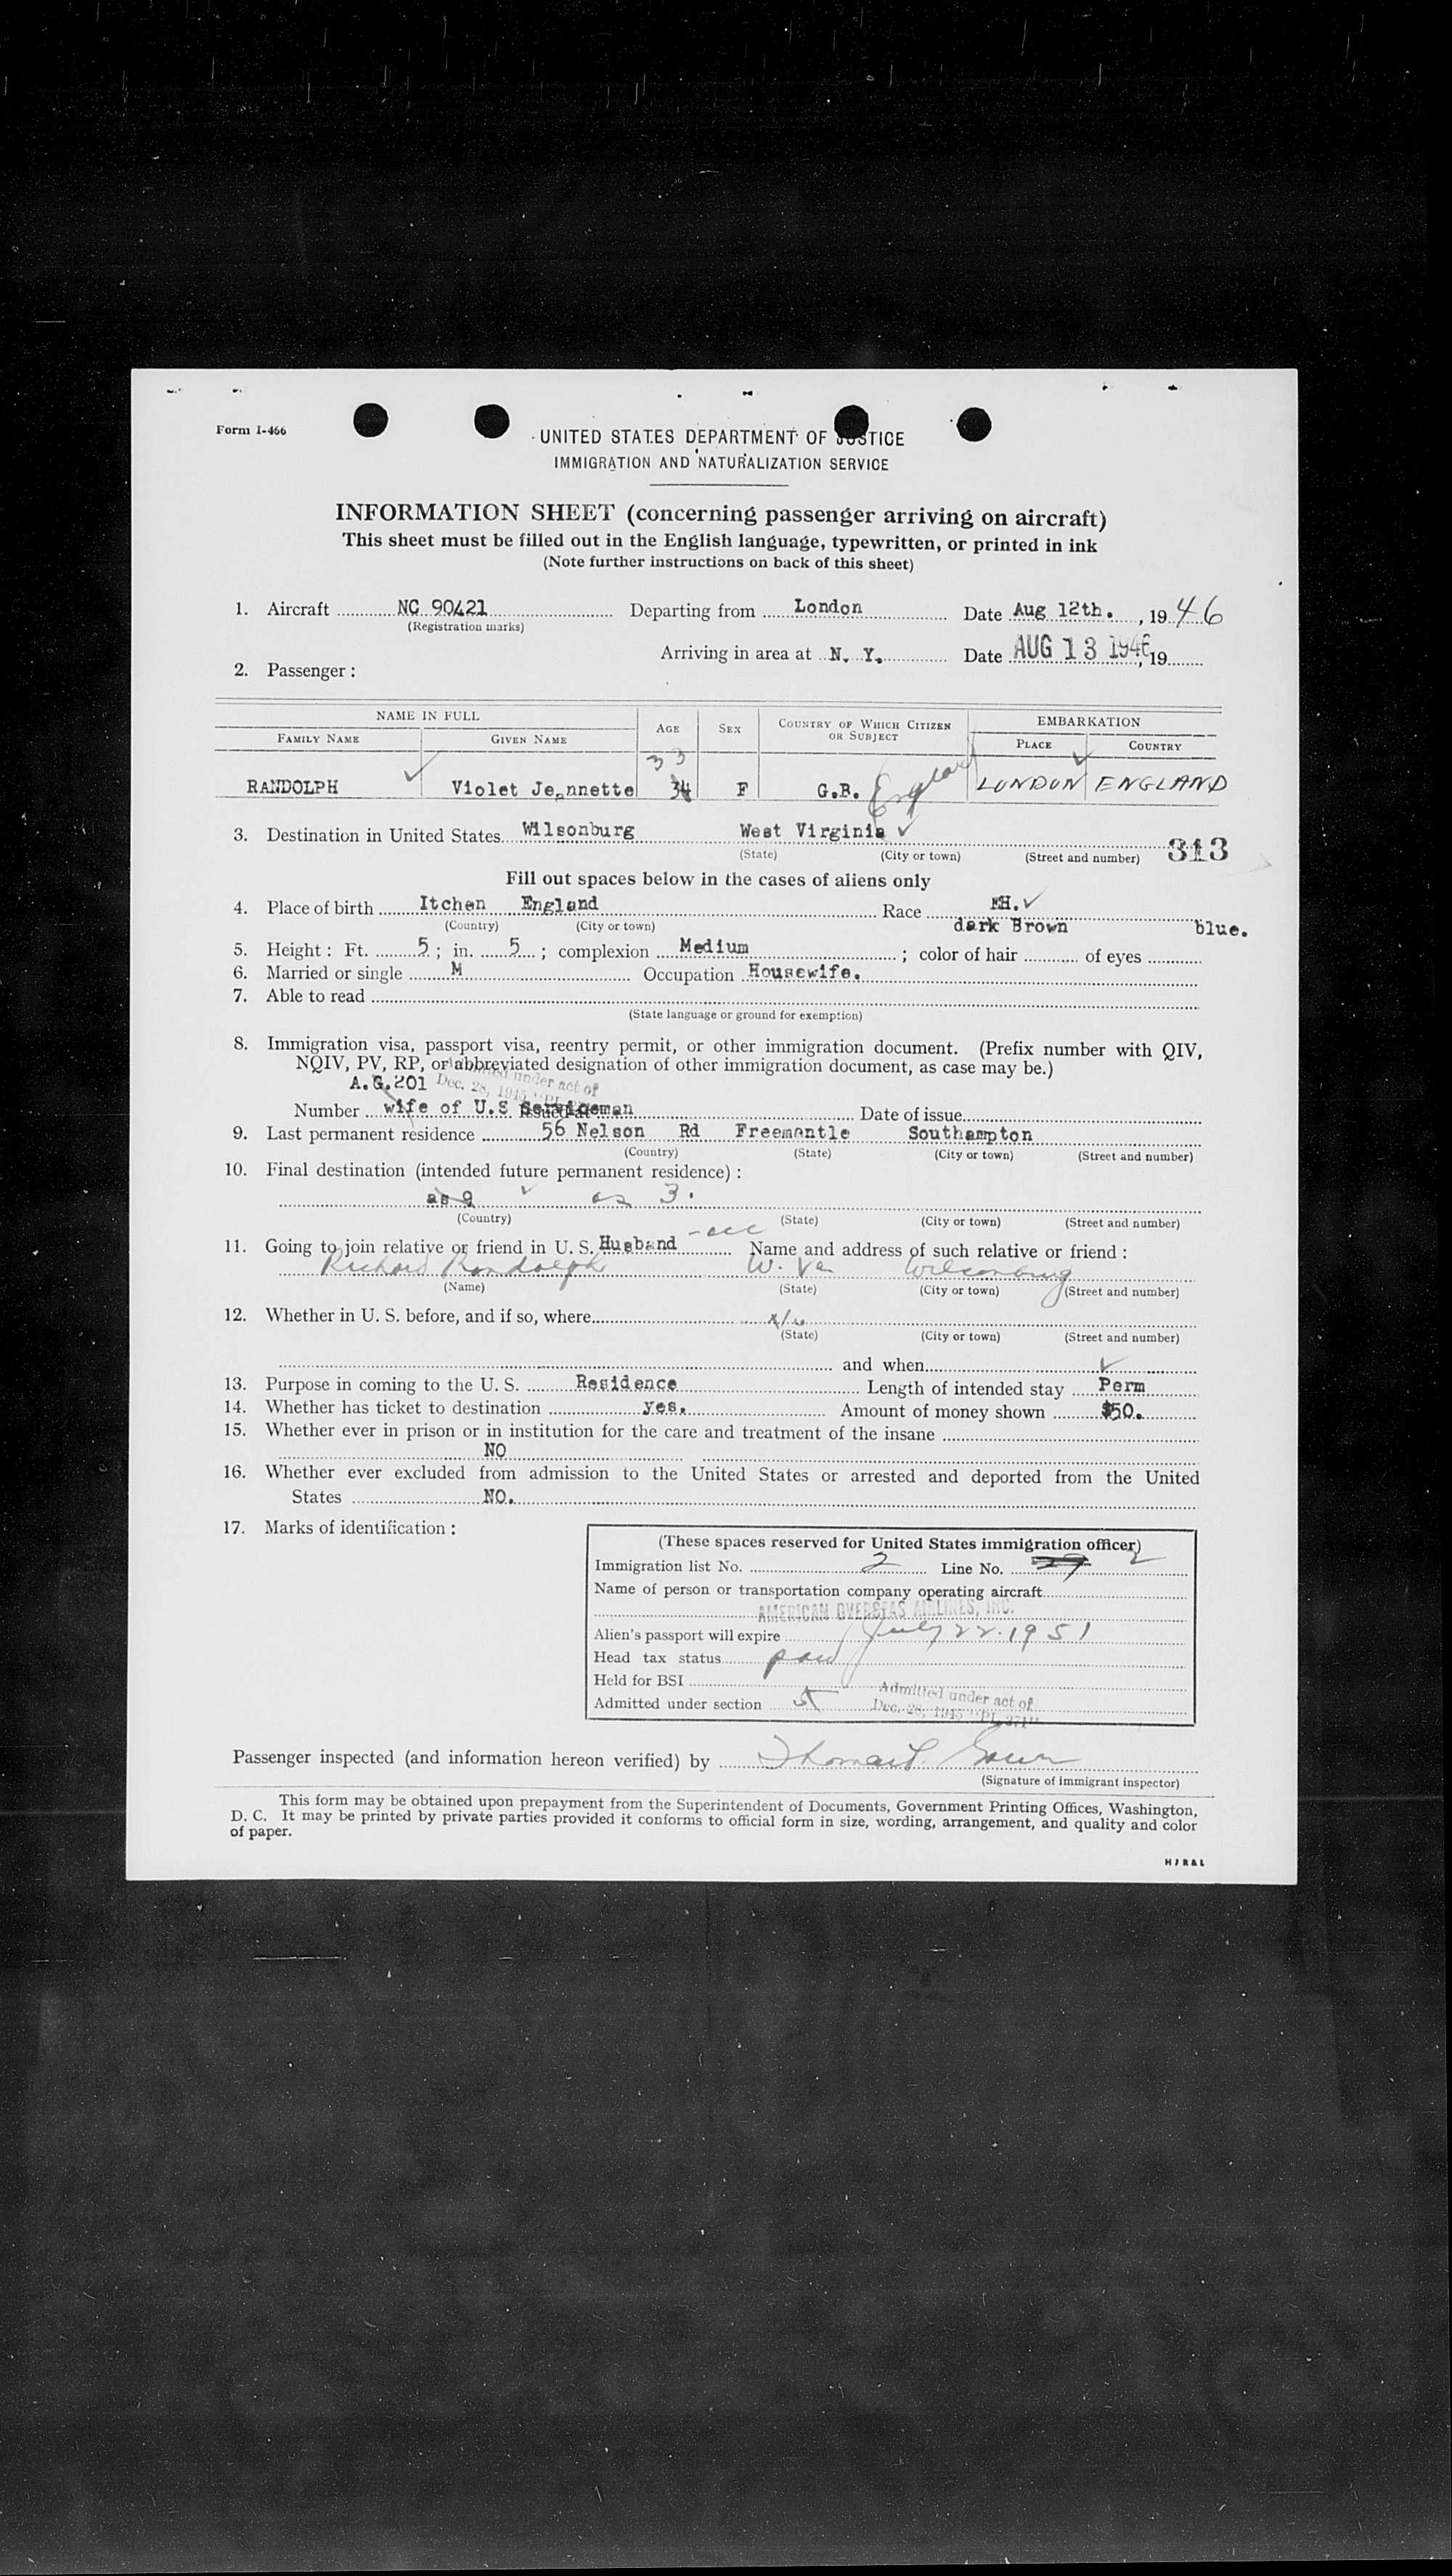 Form I-466
UNITED STATES DEPARTMENT OF JUSTICE
IMMIGRATION AND NATURALIZATION SERVICE
INFORMATION SHEET (concerning passenger arriving on aircraft)
This sheet must be filled out in the English language, typewritten, or printed in ink
(Note further instructions on back of this sheet)
1. Aircraft NC 90421 Departing from London Date Aug 12th. , 19 46
(Registration marks)
Arriving in area at N. Y. Date AUG 13 1946, 19
2. Passenger :
NAME IN FULL AGE SEX COUNTRY OF WHICH CITIZEN OR SUBJECT EMBARKATION
FAMILY NAME GIVEN NAME PLACE COUNTRY
33
RANDOLPH Violet Jeannette 34 F G.B. England LONDON ENGLAND
3. Destination in United States Wilsonburg West Virginia 313
(State) (City or town) (Street and number)
Fill out spaces below in the cases of aliens only
4. Place of birth Itchen England Race EH.
(Country) (City or town) dark Brown blue.
5. Height : Ft. 5 ; in. 5 ; complexion Medium ; color of hair of eyes
6. Married or single M Occupation Housewife.
7. Able to read
(State language or ground for exemption)
8. Immigration visa, passport visa, reentry permit, or other immigration document. (Prefix number with QIV,
NQIV, PV, RP, or abbreviated designation of other immigration document, as case may be.)
A.G.201 Admitted under act of
Dec. 28, 1945
Number wife of U.S Serviceman Issued at Date of issue
9. Last permanent residence 56 Nelson Rd Freemantle Southampton
(Country) (State) (City or town) (Street and number)
10. Final destination (intended future permanent residence) :
as 9 as 3.
(Country) (State) (City or town) (Street and number)
11. Going to join relative or friend in U. S. Husband Name and address of such relative or friend :
Richard Randolph W. Va Wilsonburg
(Name) (State) (City or town) (Street and number)
12. Whether in U. S. before, and if so, where
(State) (City or town) (Street and number)
and when
13. Purpose in coming to the U. S. Residence Length of intended stay Perm
14. Whether has ticket to destination yes. Amount of money shown $50.
15. Whether ever in prison or in institution for the care and treatment of the insane
NO
16. Whether ever excluded from admission to the United States or arrested and deported from the United
States NO.
17. Marks of identification :
(These spaces reserved for United States immigration officer)
Immigration list No. 2 Line No. 29 2
Name of person or transportation company operating aircraft
AMERICAN OVERSEAS AIRLINES, INC.
Alien's passport will expire July 22. 1951
Head tax status paid
Held for BSI
Admitted under section Admitted under act of
Dec. 28, 1945 "PL 271"
Passenger inspected (and information hereon verified) by
(Signature of immigrant inspector)
This form may be obtained upon prepayment from the Superintendent of Documents, Government Printing Offices, Washington,
D. C. It may be printed by private parties provided it conforms to official form in size, wording, arrangement, and quality and color
of paper.
HJR&L